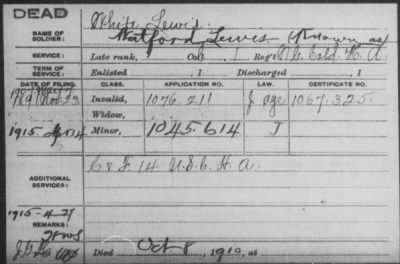 DEAD
White, Lewis
NAME OF SOLDIER: Watford, Lewis (known as
SERVICE: Late rank, Co. I, Reg't U.S. Cold. H. A.
TERM OF SERVICE: Enlisted , 1 Discharged , 1
DATE OF FILING. CLASS. APPLICATION NO. LAW. CERTIFICATE NO.
Nov. 23 Invalid, 1076.211 J age 1067.325
Widow,
1915 Minor, 1045.614 J
ADDITIONAL SERVICES: C & F. 14 U.S.C.H.A.
1915-4-27
REMARKS:
Died Oct 8, 1910, at